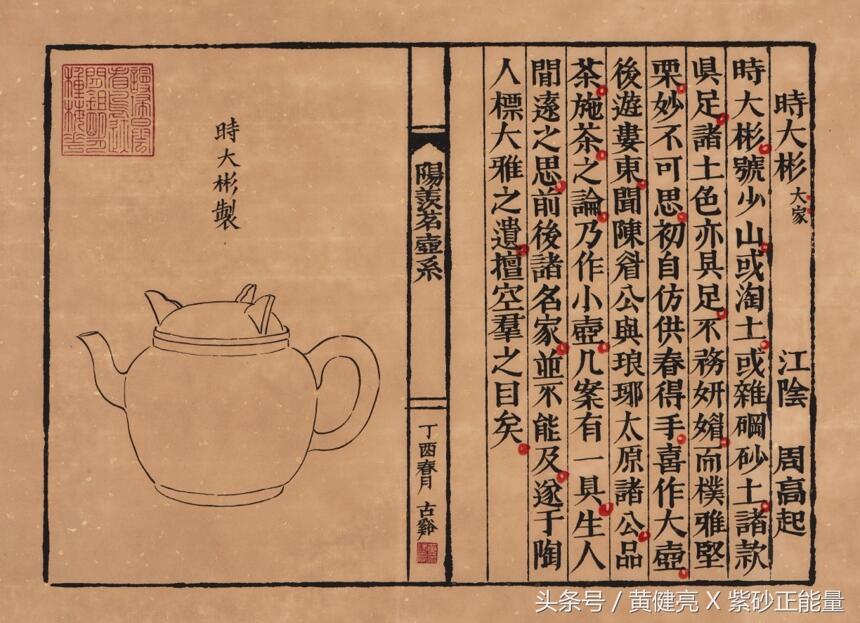 時大彬 大家 江陰 周高起
時大彬號少山或淘土或雜碙砂土諸款
具足諸土色亦具足不務妍媚而樸雅堅
栗妙不可思初自仿供春得手喜作大壺
後遊婁東聞陳眉公與琅琊太原諸公品
茶施茶之論乃作小壺几案有一具生人
閒遠之思前後諸名家並不能及遂于陶
人標大雅之遺擅空羣之目矣
陽羨茗壺系
丁酉春月 古谿
時大彬製
头条号 / 黄健亮 X 紫砂正能量